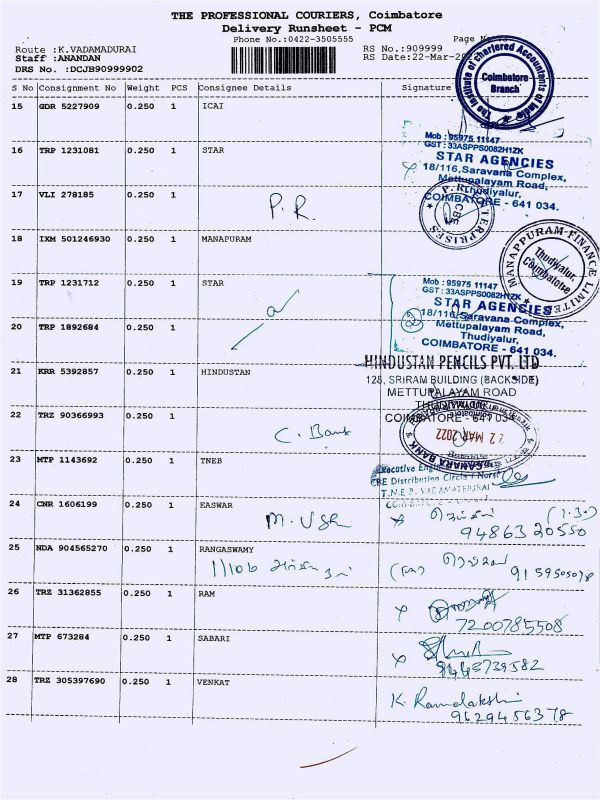 THE PROFESSIONAL COURIERS, Coimbatore
Delivery Runsheet - PCM
Phone No:0422-3505555
Route :K.VADAMADURAI
RS No.:909999
Staff :ANANDAN
RS Date:22-Mar-
DRS No. :DCJB90999902
S No Consignment No Weight PCS Consignee Details Signature
The Institute of Chartered Accountants of India
Coimbatore
Branch
15 GDR 5227909 0.250 1 ICAI
Mob : 95975 11147
GST : 33ASPPS0082H1ZK
16 TRP 1231081 0.250 1 STAR
STAR AGENCIES
18/116,Saravana Complex,
Mettupalayam Road,
Thudiyalur,
COIMBATORE - 641 034.
17 VLI 278185 0.250 1
P. R.
18 IXM 501246930 0.250 1 MANAPURAM
MANAPPURAM FINANCE LIMITED
Thudiyalur,
Coimbatore
19 TRP 1231712 0.250 1 STAR
Mob : 95975 11147
GST : 33ASPPS0082H1ZK
STAR AGENCIES
18/116,Saravana Complex,
Mettupalayam Road,
Thudiyalur,
COIMBATORE - 641 034.
20 TRP 1892684 0.250 1
21 KRR 5392857 0.250 1 HINDUSTAN
HINDUSTAN PENCILS PVT. LTD
128, SRIRAM BUILDING (BACKSIDE)
METTUPALAYAM ROAD
COIMBATORE - 641 034
22 TRZ 90366993 0.250 1
C. Bank
CANARA BANK
MAR 2022
23 MTP 1143692 0.250 1 TNEB
Executive
CBE Distribution Circle / North
T.N.E.B.
24 CNR 1606199 0.250 1 EASWAR
9486320550
25 NDA 904565270 0.250 1 RANGASWAMY
26 TRZ 31362855 0.250 1 RAM
7200785508
27 MTP 673284 0.250 1 SABARI
28 TRZ 305397690 0.250 1 VENKAT
9629456378